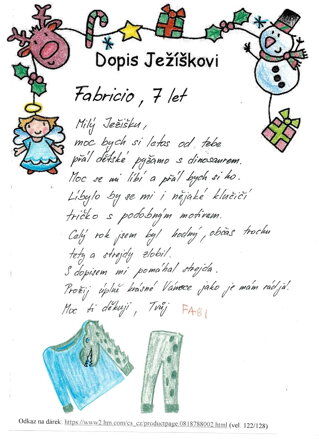 Dopis Ježíškovi
Fabricio, 7 let
Milý Ježíšku,
moc bych si letos od tebe
přál dětské pyžamo s dinosaurem.
Moc se mi líbí a přál bych si ho.
Líbylo by se mi i nějaké klučičí
tričko s podobným motivem.
Celý rok jsem byl hodný, občas trochu
tety a strejdy zlobil.
S dopisem mi pomáhal strejda.
Prožij úplně krásné Vánoce jako je mám rád já.
Moc ti děkuji, Tvůj FABI
Odkaz na dárek: https://www2.hm.com/cs_cz/productpage.0818788002.html (vel. 122/128)